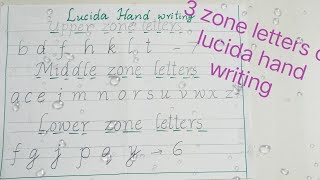 Lucida Hand writing
Upper zone letters
b d f h k l t - 7
Middle zone letters
a c e i m n o r s u v w x z
Lower zone letters
f g j p q y → 6
3 zone letters o
lucida hand
writing